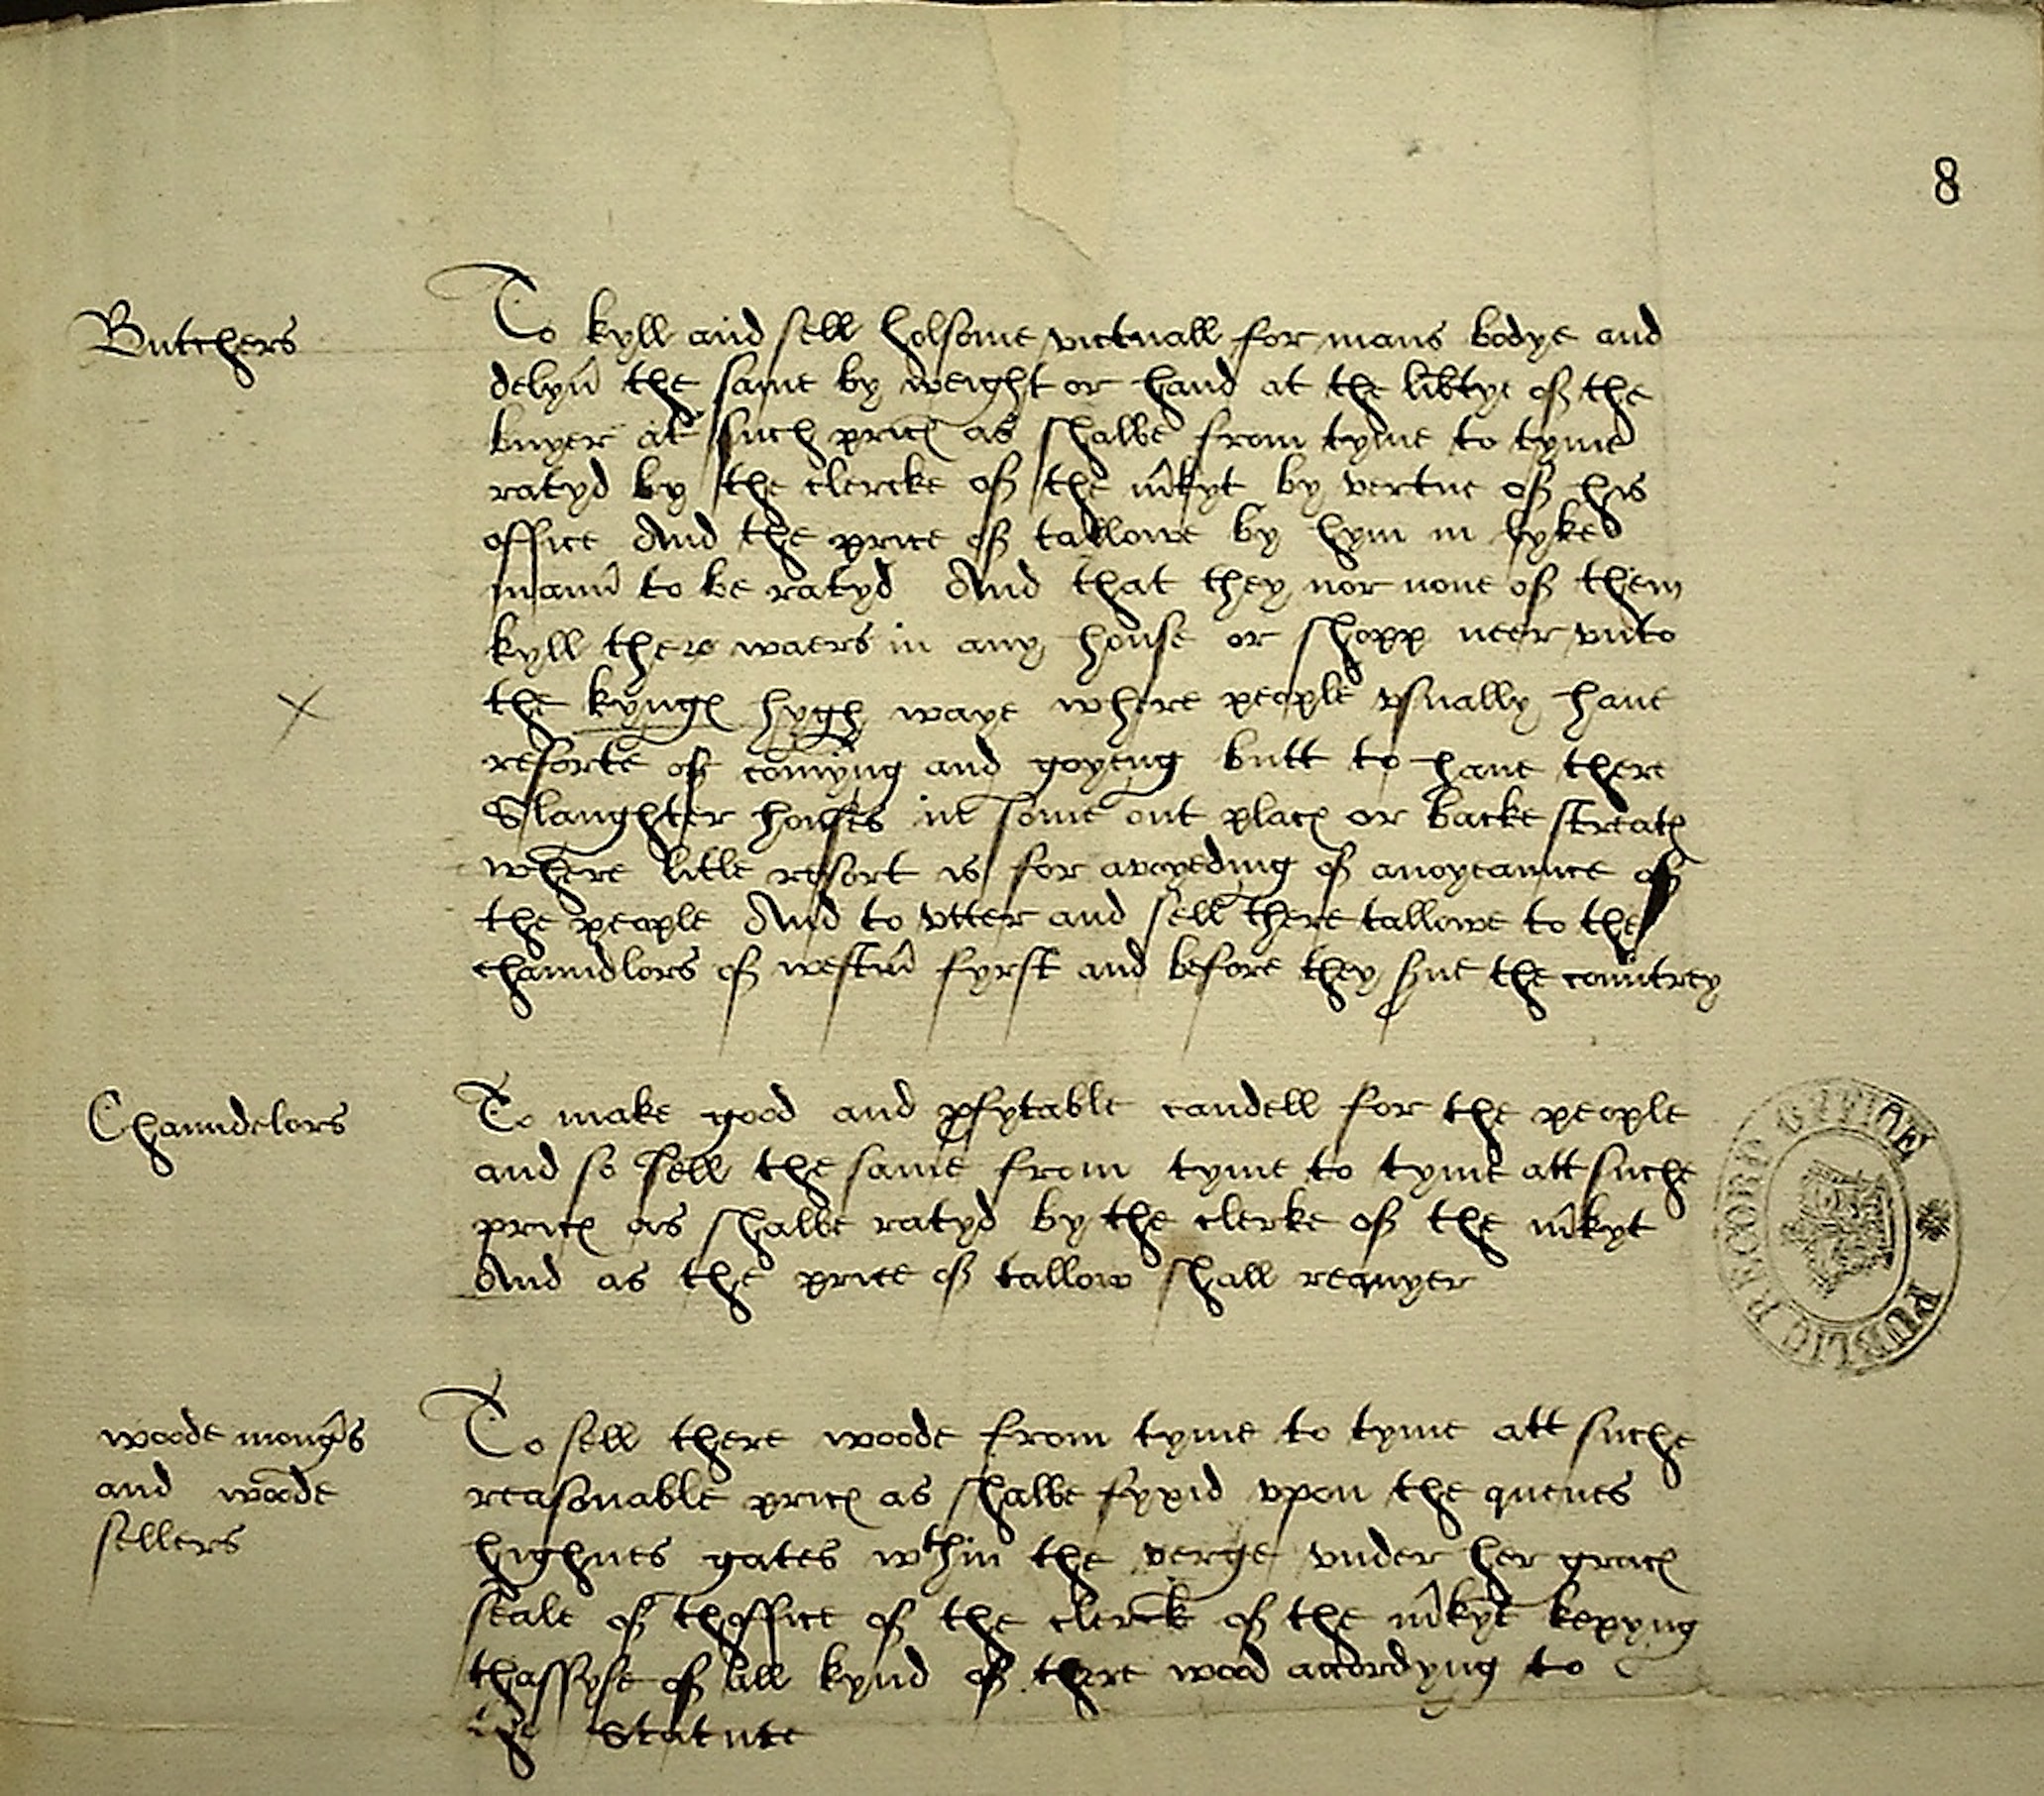 8
Butchers
To kyll and sell holsome victuall for mans bodye and
delyv̑ the same by weight or hand at the lib̑tye of the
buyer at such pricꝭ as shalbe from tyme to tyme
ratyd by the clercke of the m̑kyt by vertue of his
office And the price of tallowe by hym in lyke
mann̑ to be ratyd And that they nor none of them
kyll there waers in any house or shopp neer vnto
the kyngꝭ hygh waye where people vsually haue
resorte of com̄yng and goyeng butt to haue there
Slaughter houses in some out placꝭ or backe streatꝭ
where litle resort is for avoyeding of anoyeaunce of
the people And to vtter and sell there tallowe to the
chaundlors of westm̑ fyrst and before they s̑ue the countrey
Chaundelors
To make good and ꝓfytable candell for the people
and so sell the same from tyme to tyme att suche
pricꝭ as shalbe ratyd by the clerke of the m̑kyt
And as the price of tallow shall requyer
woode mong̑s
and woode
sellers
To sell there woode from tyme to tyme att suche
reasonable pricꝭ as shalbe fyxid vpon the quenes
highnes gates wthin the verge vnder her gracꝭ
seale of thoffice of the clerck of the m̑kyt kepyng
thassyse of all kynd of there wood accordyng to
the Statute
PUBLIC RECORD OFFICE